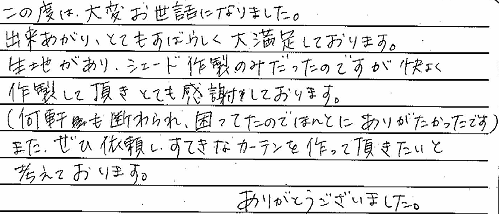 この度は、大変お世話になりました。
出来あがり、とてもすばらしく大満足しております。
生地があり、シェード作製のみだったのですが快よく
作製して頂きとても感謝をしております。
(何軒も断わられ、困ってたのでほんとにありがたかったです)
また、ぜひ依頼し、すてきなカーテンを作って頂きたいと
考えております。
ありがとうございました。